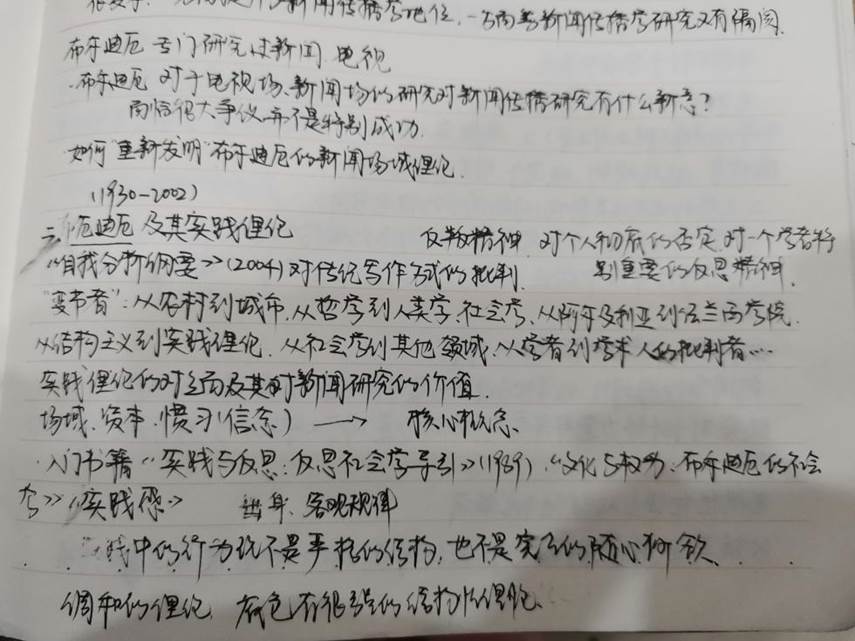 新闻传播学地位,一方面与新闻传播学研究又有隔阂.
布尔迪厄 专门研究过新闻 电视
·布尔迪厄 对于电视场、新闻场的研究对新闻传播研究有什么新意?
面临很大争议,并不是特别成功.
如何"重新发明"布尔迪厄的新闻场域理论.
(1930-2002)
二.布厄迪厄及其实践理论 反叛精神 对个人彻底的否定 对一个学者特
《自我分析纲要》(2004)对传统写作方式的批判. 别重要的反思精神.
"变节者":从农村到城市,从哲学到人类学、社会学,从阿尔及利亚到法兰西学院.
从结构主义到实践理论.从社会学到其他领域,从学者到学术人的批判者……
实践理论的对立面及其对新闻研究的价值.
场域、资本、惯习(信念) → 核心概念
·入门书籍《实践与反思:反思社会学导引》(1989).《文化与权力:布尔迪厄的社会
学》《实践感》 客观规律
践中的行为既不是严格的结构,也不是完全的随心所欲
调和的理论. 底色有很强的结构性理论.